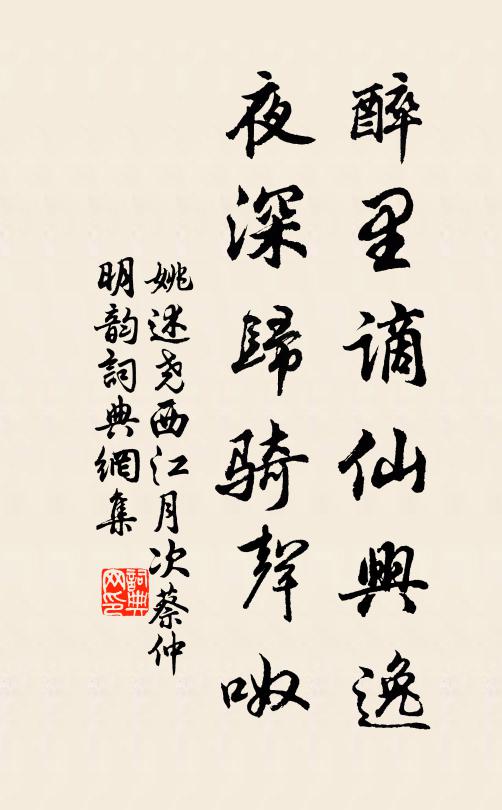 醉里谪仙興逸
夜深歸骑聲呶
姚述尧西江月次蔡仲
明韵詞典網集
詞典
网印